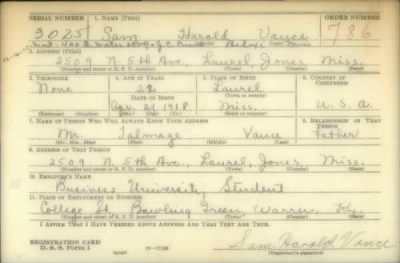 SERIAL NUMBER 1. NAME (Print) ORDER NUMBER
3025 Sam Harold Vance 786
Biloxi Miss
2. ADDRESS (Print)
2509 N. 5th Ave., Laurel, Jones, Miss.
(Number and street or R. F. D. number) (Town) (County) (State)
3. TELEPHONE 4. AGE IN YEARS 5. PLACE OF BIRTH 6. COUNTRY OF CITIZENSHIP
None 22 Laurel
DATE OF BIRTH (Town or county)
Apr. 21 1918 Miss. U. S. A.
(Exchange) (Number) (Mo.) (Day) (Yr.) (State or country)
7. NAME OF PERSON WHO WILL ALWAYS KNOW YOUR ADDRESS 8. RELATIONSHIP OF THAT PERSON
Mr. Talmage Vance Father
(Mr., Mrs., Miss) (First) (Middle) (Last)
9. ADDRESS OF THAT PERSON
2509 N. 5th Ave., Laurel, Jones, Miss.
(Number and street or R. F. D. number) (Town) (County) (State)
10. EMPLOYER'S NAME
Business University Student
11. PLACE OF EMPLOYMENT OR BUSINESS
College St. Bowling Green, Warren, Ky.
(Number and street or R. F. D. number) (Town) (County) (State)
I AFFIRM THAT I HAVE VERIFIED ABOVE ANSWERS AND THAT THEY ARE TRUE.
REGISTRATION CARD
D. S. S. FORM 1
Sam Harold Vance
(Registrant's signature)